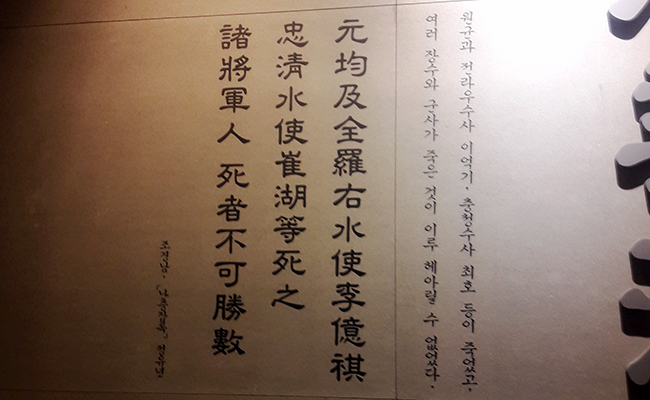 원균과 전라우수사 이억기, 충청수사 최호 등이 죽었고,
여러 장수와 군사가 죽은 것이 이루 헤아릴 수 없었다.
元均及全羅右水使李億祺
忠清水使崔湖等死之
諸將軍人 死者不可勝數
조경남,